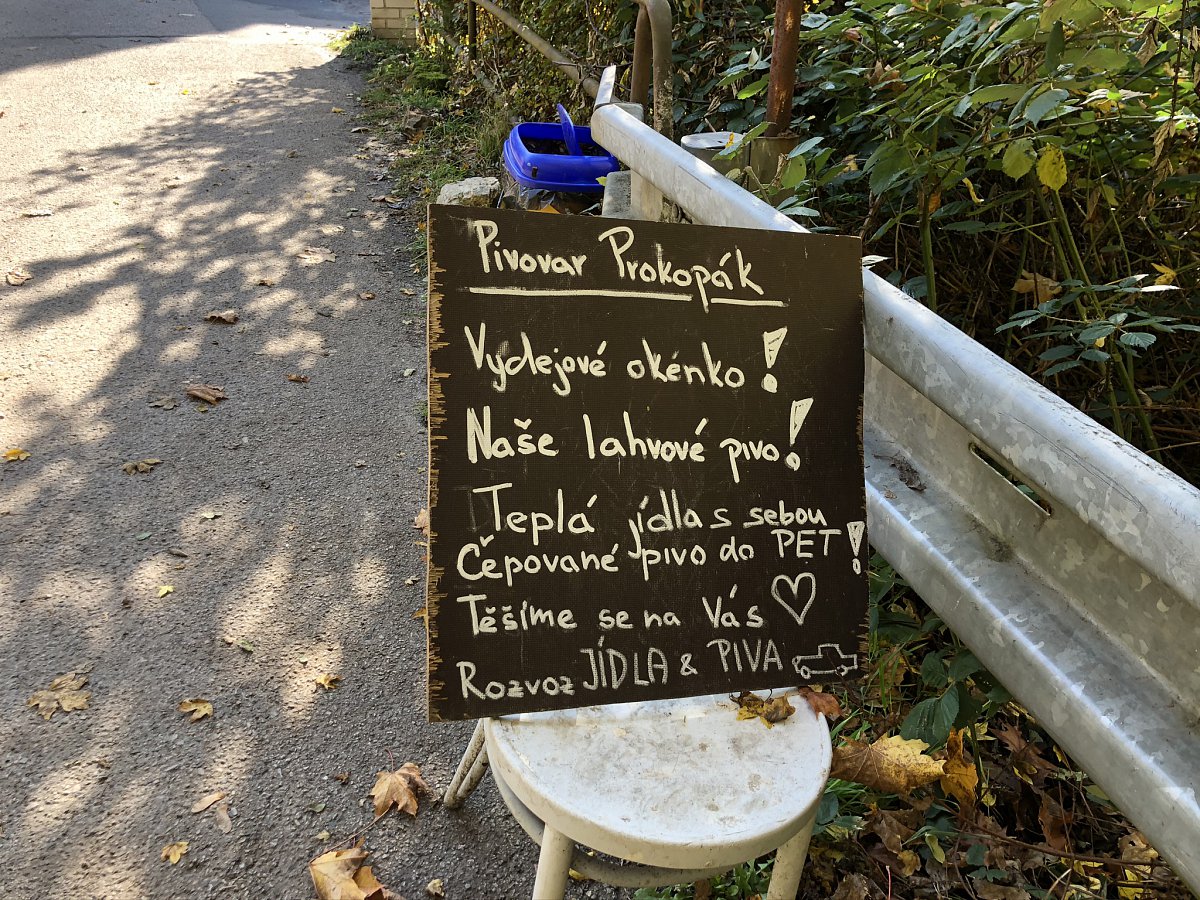 Pivovar Prokopák
Vydejové okénko!
Naše lahvové pivo!
Teplá jídla s sebou
Čepované pivo do PET!
Těšíme se na Vás ♡
Rozvoz JÍDLA & PIVA